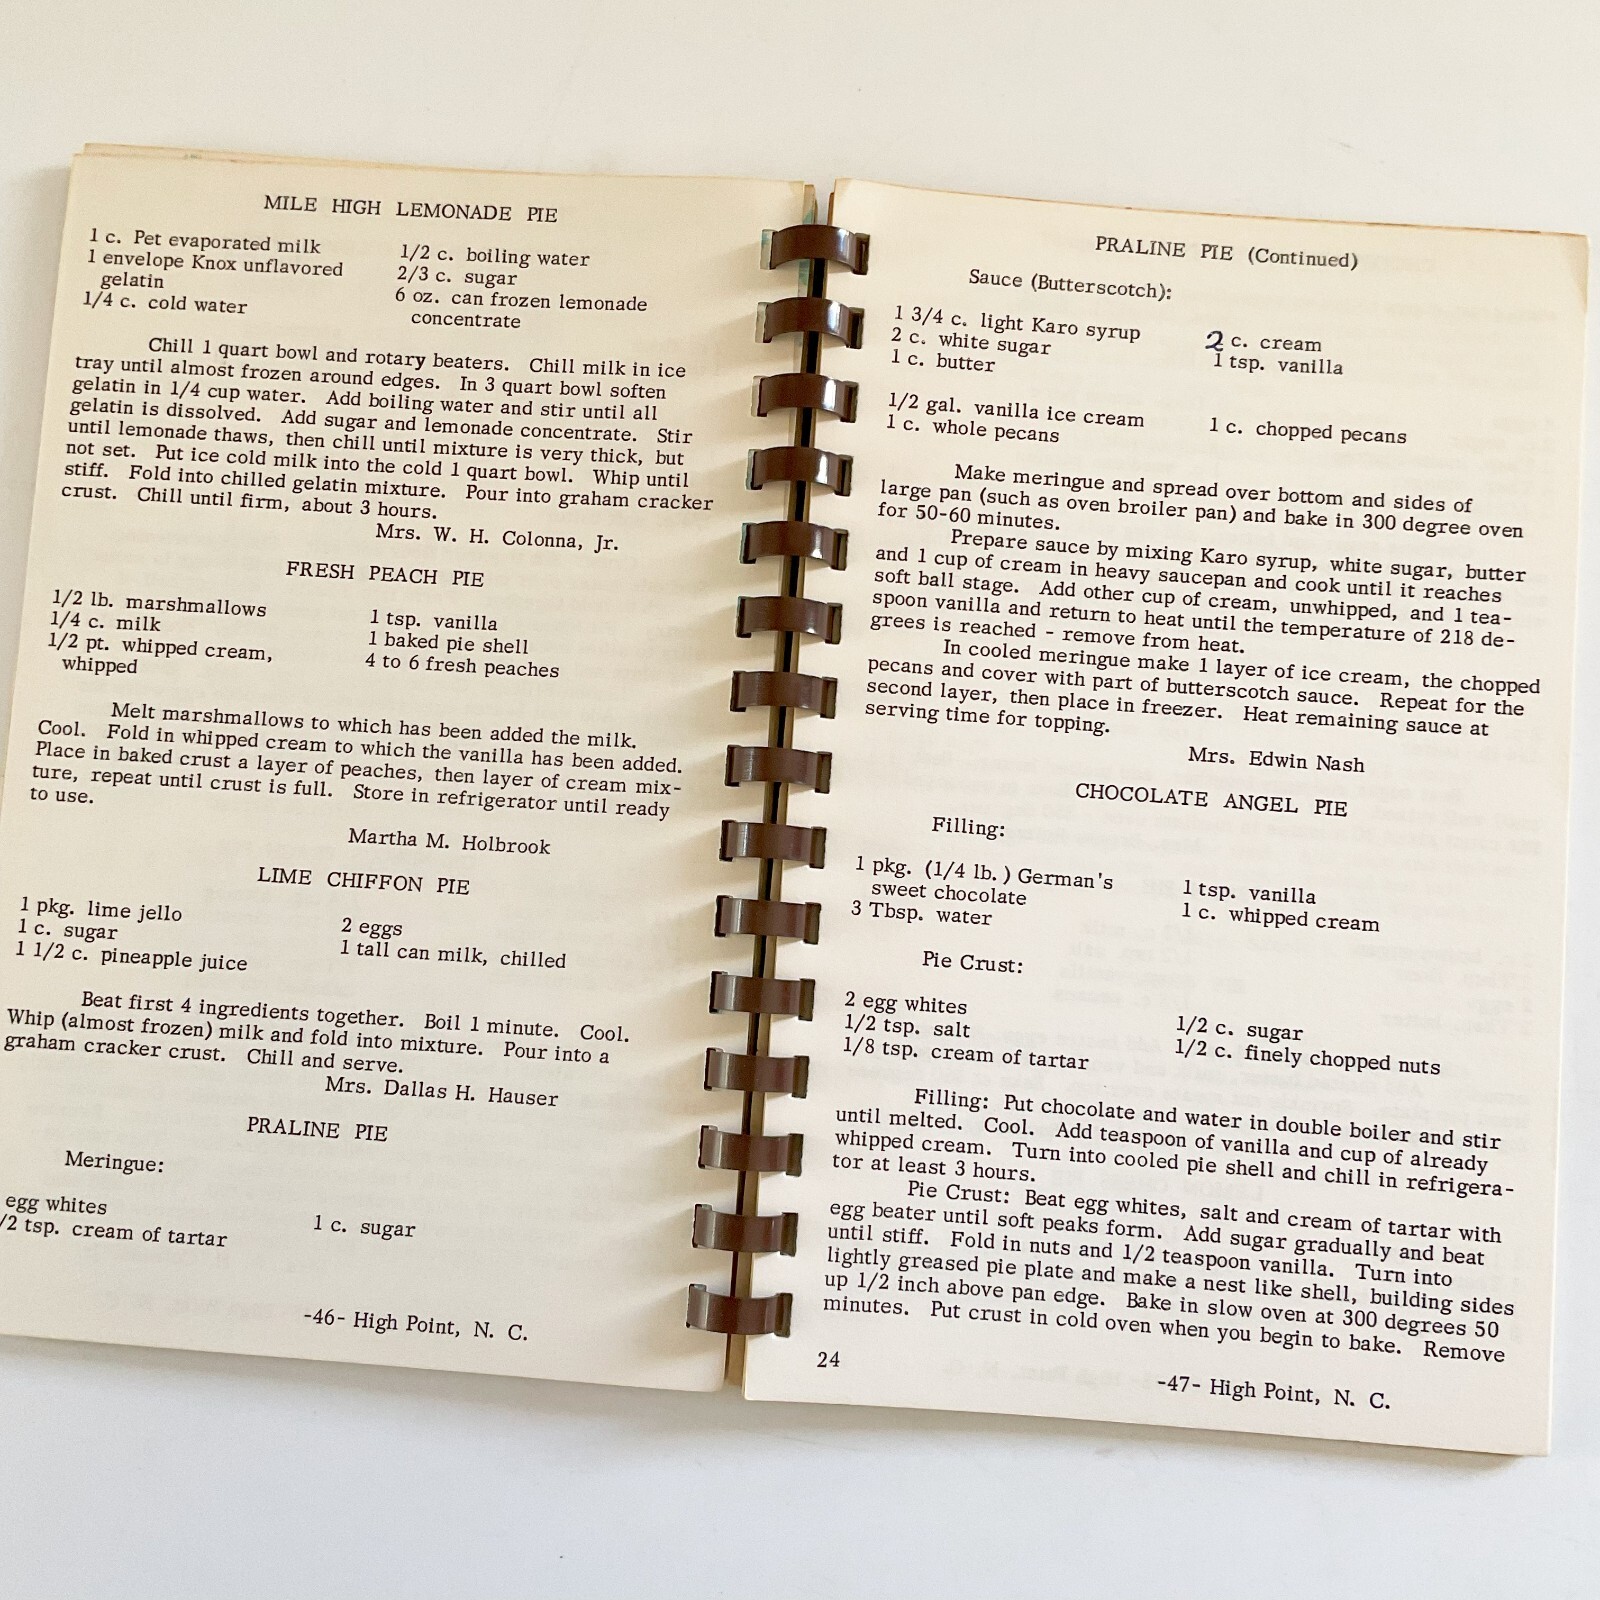 MILE HIGH LEMONADE PIE
1 c. Pet evaporated milk
1 envelope Knox unflavored
gelatin
1/4 c. cold water
1/2 c. boiling water
2/3 c. sugar
6 oz. can frozen lemonade
concentrate
Chill 1 quart bowl and rotary beaters. Chill milk in ice
tray until almost frozen around edges. In 3 quart bowl soften
gelatin in 1/4 cup water. Add boiling water and stir until all
gelatin is dissolved. Add sugar and lemonade concentrate. Stir
until lemonade thaws, then chill until mixture is very thick, but
not set. Put ice cold milk into the cold 1 quart bowl. Whip until
stiff. Fold into chilled gelatin mixture. Pour into graham cracker
crust. Chill until firm, about 3 hours.
Mrs. W. H. Colonna, Jr.
FRESH PEACH PIE
1/2 lb. marshmallows
1/4 c. milk
1/2 pt. whipped cream,
whipped
1 tsp. vanilla
1 baked pie shell
4 to 6 fresh peaches
Melt marshmallows to which has been added the milk.
Cool. Fold in whipped cream to which the vanilla has been added.
Place in baked crust a layer of peaches, then layer of cream mix-
ture, repeat until crust is full. Store in refrigerator until ready
to use.
Martha M. Holbrook
LIME CHIFFON PIE
1 pkg. lime jello
1 c. sugar
1 1/2 c. pineapple juice
2 eggs
1 tall can milk, chilled
Beat first 4 ingredients together. Boil 1 minute. Cool.
Whip (almost frozen) milk and fold into mixture. Pour into a
graham cracker crust. Chill and serve.
Mrs. Dallas H. Hauser
PRALINE PIE
Meringue:
egg whites
/2 tsp. cream of tartar
1 c. sugar
-46- High Point, N. C.
PRALINE PIE (Continued)
Sauce (Butterscotch):
1 3/4 c. light Karo syrup
2 c. white sugar
1 c. butter
2 c. cream
1 tsp. vanilla
1/2 gal. vanilla ice cream
1 c. whole pecans
1 c. chopped pecans
Make meringue and spread over bottom and sides of
large pan (such as oven broiler pan) and bake in 300 degree oven
for 50-60 minutes.
Prepare sauce by mixing Karo syrup, white sugar, butter
and 1 cup of cream in heavy saucepan and cook until it reaches
soft ball stage. Add other cup of cream, unwhipped, and 1 tea-
spoon vanilla and return to heat until the temperature of 218 de-
grees is reached - remove from heat.
In cooled meringue make 1 layer of ice cream, the chopped
pecans and cover with part of butterscotch sauce. Repeat for the
second layer, then place in freezer. Heat remaining sauce at
serving time for topping.
Mrs. Edwin Nash
CHOCOLATE ANGEL PIE
Filling:
1 pkg. (1/4 lb.) German's
sweet chocolate
3 Tbsp. water
1 tsp. vanilla
1 c. whipped cream
Pie Crust:
2 egg whites
1/2 tsp. salt
1/8 tsp. cream of tartar
1/2 c. sugar
1/2 c. finely chopped nuts
Filling: Put chocolate and water in double boiler and stir
until melted. Cool. Add teaspoon of vanilla and cup of already
whipped cream. Turn into cooled pie shell and chill in refrigera-
tor at least 3 hours.
Pie Crust: Beat egg whites, salt and cream of tartar with
egg beater until soft peaks form. Add sugar gradually and beat
until stiff. Fold in nuts and 1/2 teaspoon vanilla. Turn into
lightly greased pie plate and make a nest like shell, building sides
up 1/2 inch above pan edge. Bake in slow oven at 300 degrees 50
minutes. Put crust in cold oven when you begin to bake. Remove
24
-47- High Point, N. C.